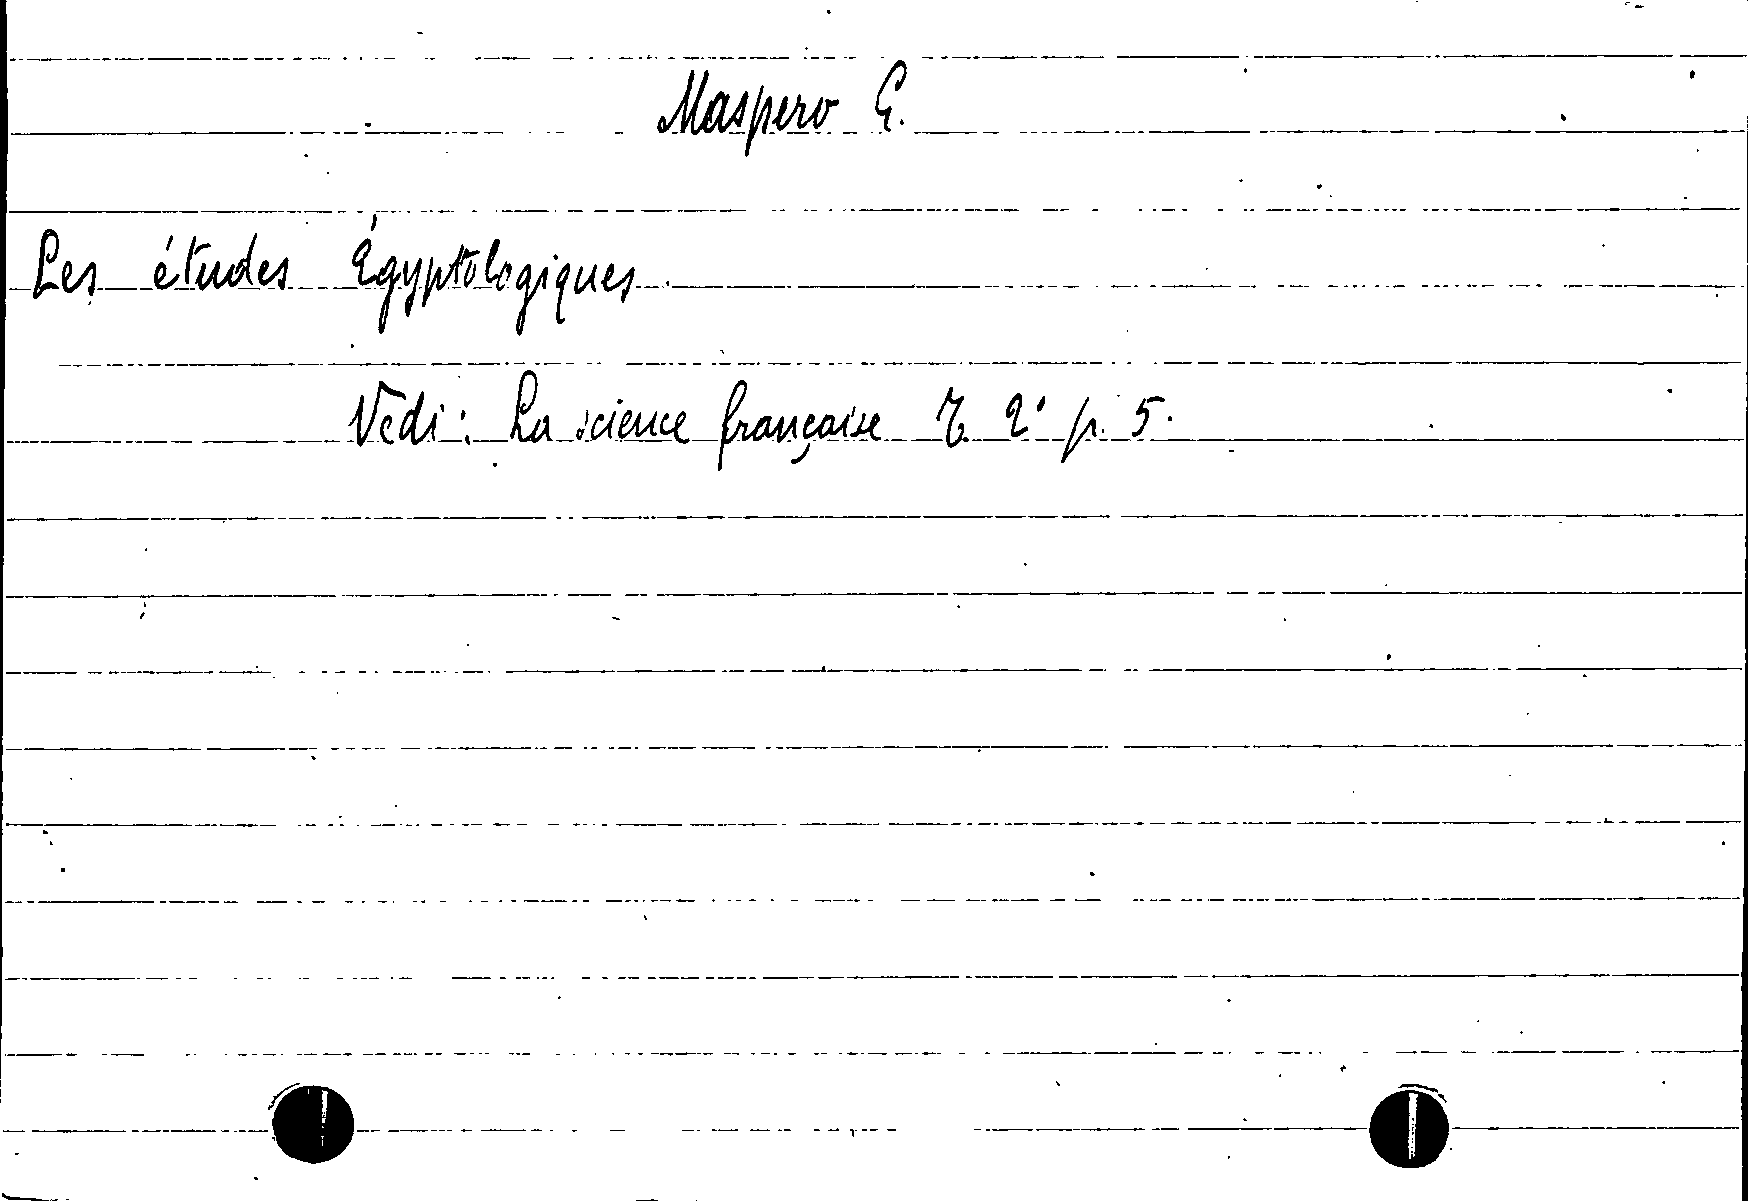 Maspero G.
Les études Égyptologiques.
Vedi: La science française T. 2° p. 5.